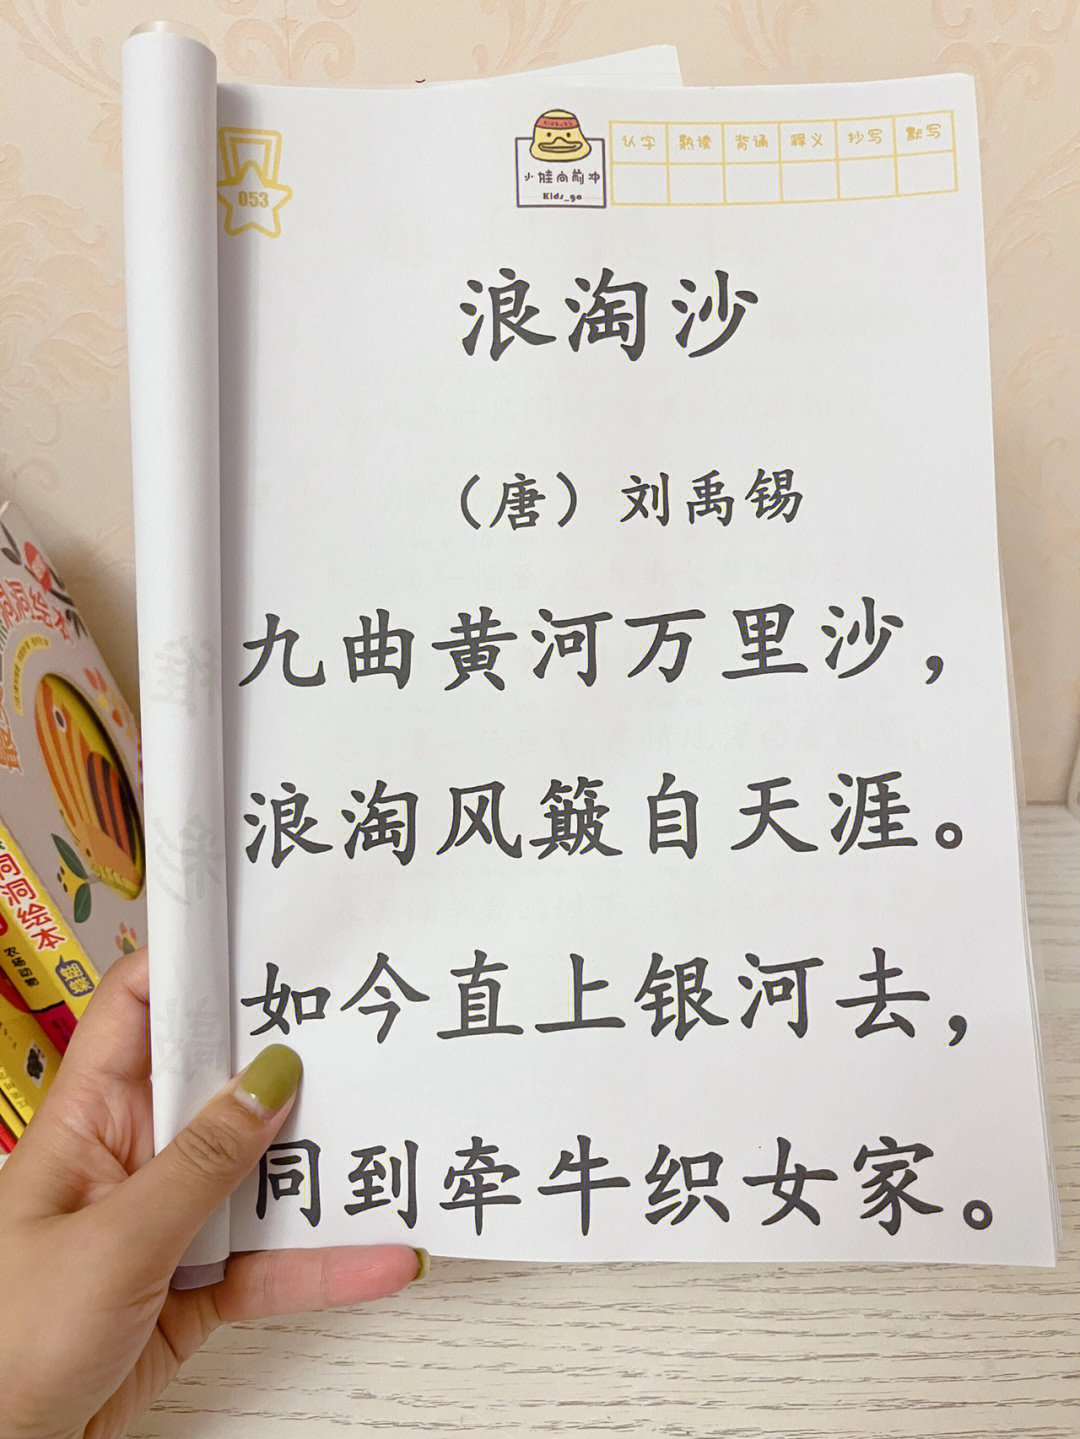 053
小娃向前冲
Kids_go
认字 熟读 背诵 释义 抄写 默写
浪淘沙
（唐）刘禹锡
九曲黄河万里沙，
浪淘风簸自天涯。
如今直上银河去，
同到牵牛织女家。
洞洞绘本
洞洞绘本
农场动物
蝴蝶